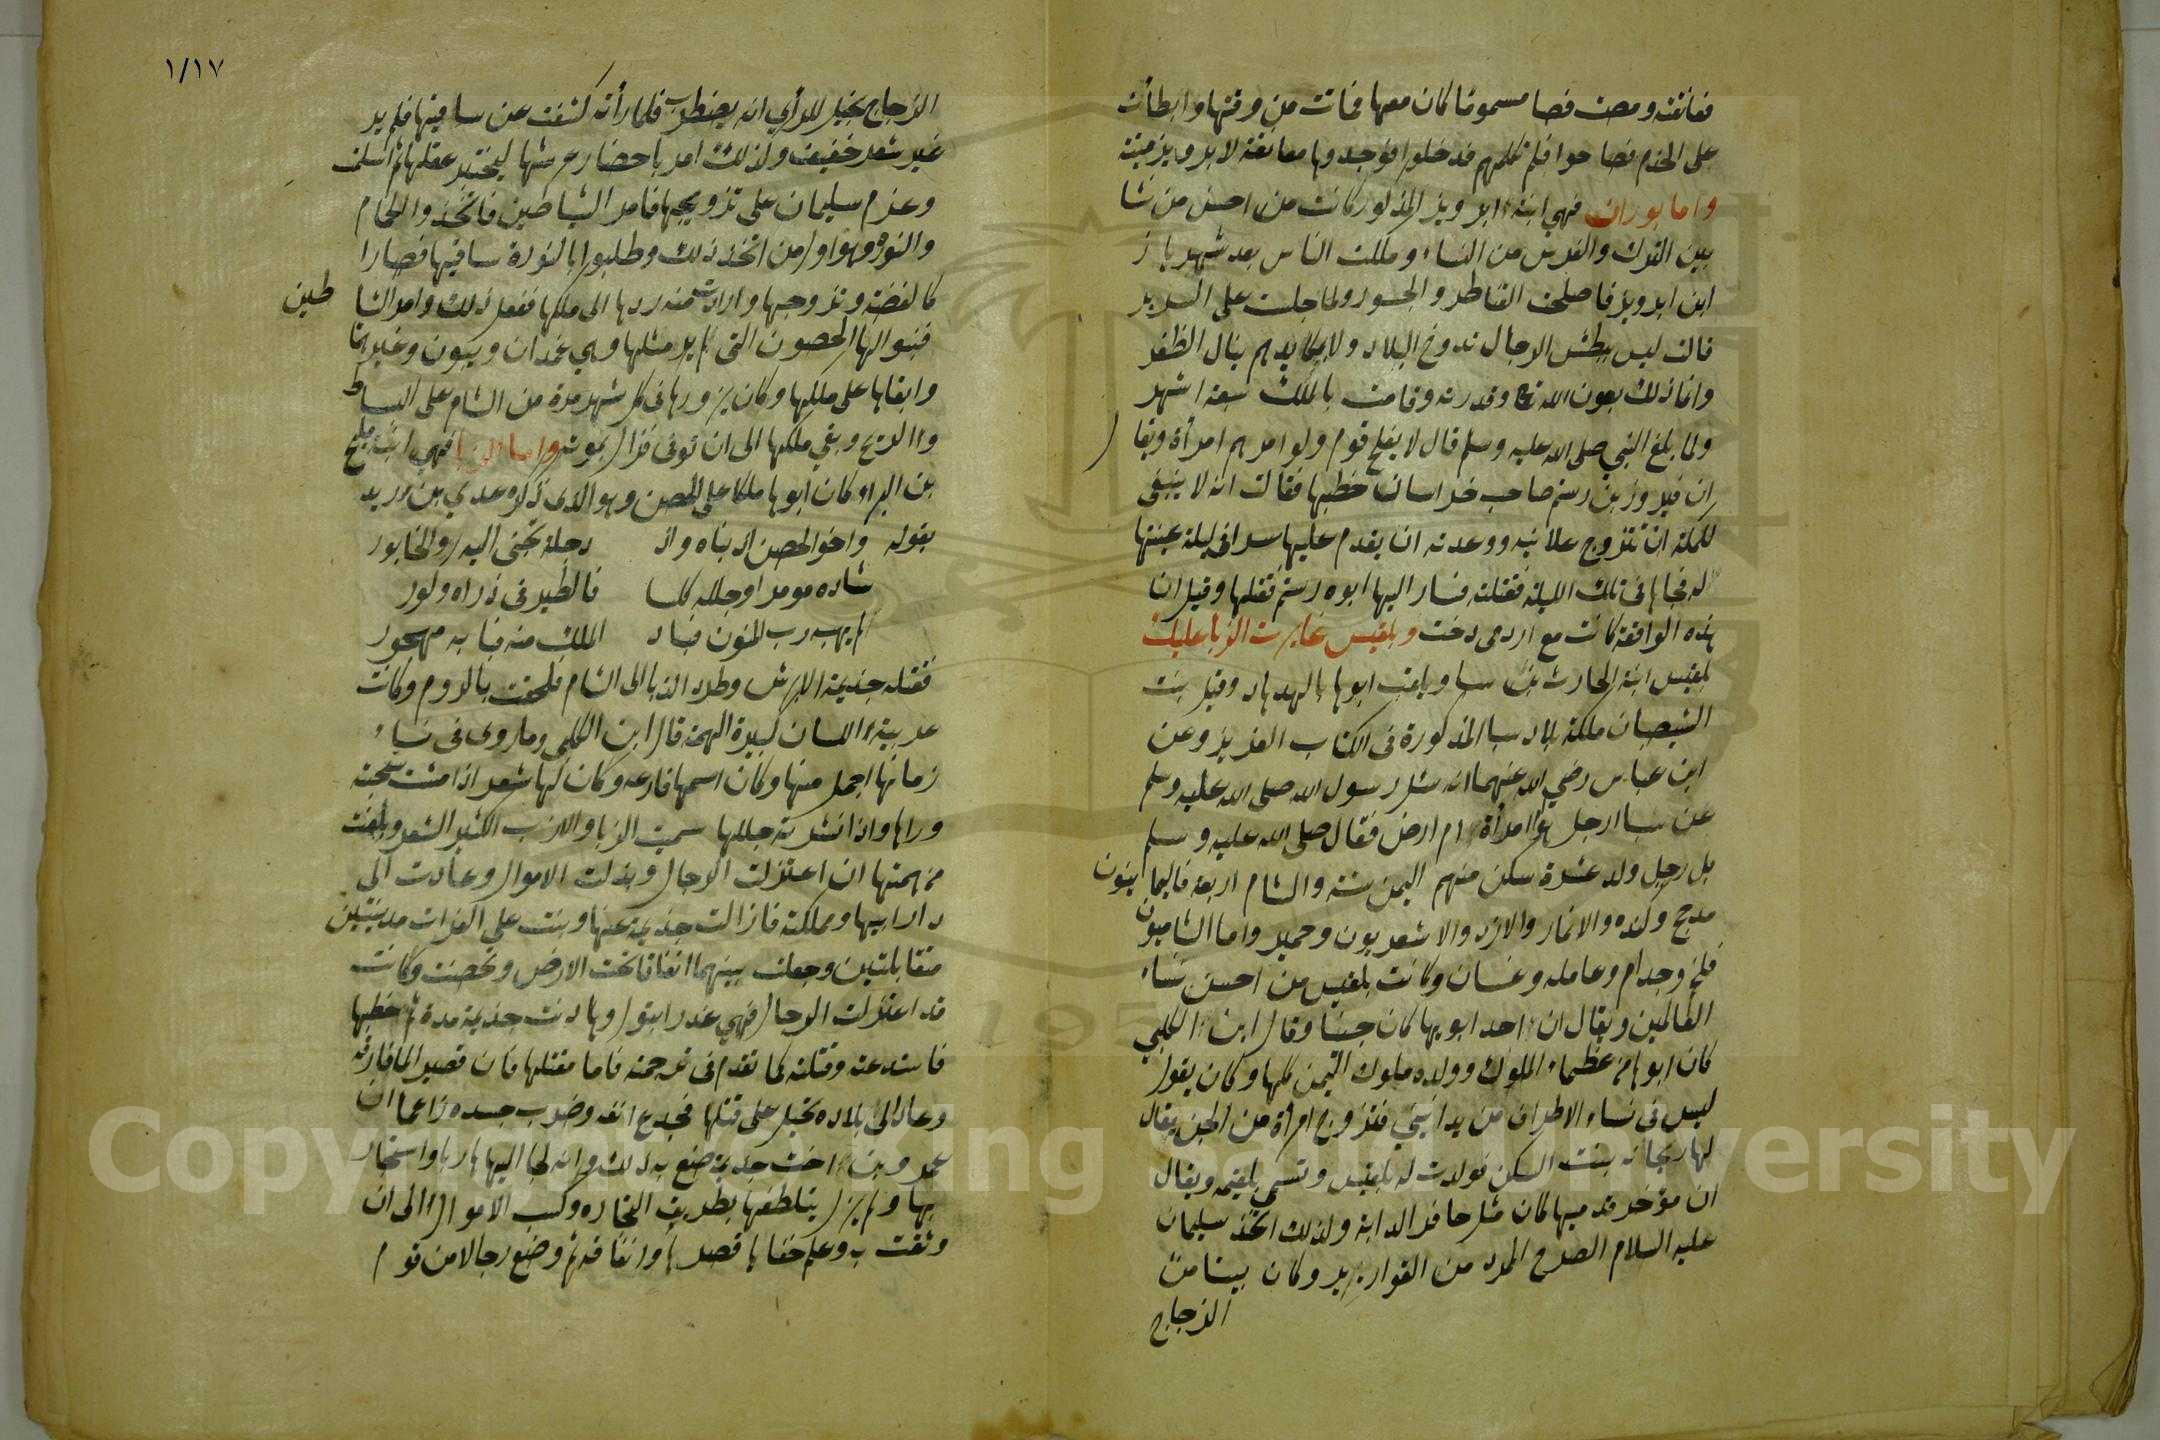 فعانقته ومصت فصا مسموما كان معها فماتت من وقتها وابطأت
على الخدم فصاحوا فلم تكلمهم فدخلوا فوجدوها معانقة لابرويز ميتة
واما بوران فهي ابنة ابرويز المذكور كانت من احسن من نشا
بين الترك والفرس من النساء وملكت الناس بعد شهريار
ابن ابرويز فاصلحت القناطر والجسور ولما جلست على السرير
قالت ليس ببطش الرجال تدوخ البلاد ولا بمكايدهم ينال الظفر
وانما ذلك بعون الله تع وقدرته وقامت بالملك سبعة اشهر
ولما بلغ النبي صلى الله عليه وسلم قال لا يفلح قوم ولوا امرهم امرأة ويقال
ان فيروز بن رستم صاحب خراسان خطبها فقالت انه لا ينبغي
للملكة ان تتزوج علانية ووعدته ان يقدم عليها سرا في ليلة عينتها
له فجاها في تلك الليلة فقتلته فسار اليها ابوه رستم فقتلها وقيل ان
هذه الواقعة كانت مع ازدمى دخت وبلقيس غايرت الزبا عليك
بلقيس ابنة الحارث بن سبا ويلقب ابوها بالهدهاد وقيل بنت
الشيصبان ملكة بلاد سبا المذكورة في الكتاب العزيز وعن
ابن عباس رضي الله عنهما انه سئل رسول الله صلى الله عليه وسلم
عن سبا ارجل هو ام امرأة ام ارض فقال صلى الله عليه وسلم
بل رجل ولد عشرة سكن منهم اليمن ستة والشام اربعة فاليمانيون
مدحج وكنده والانمار والازد والاشعريون وحمير واما الشاميون
فلخم وجدام وعامله وغسان وكانت بلقيس من احسن نساء
العالمين ويقال ان احد ابويها كان جنيا وقال ابن الكلبي
كان ابوها من عظماء الملوك وولده ملوك اليمن كلها وكان يقول
ليس في نساء الاطراف من يدانيني فتزوج امرأة من الجن يقال
لها ريحانه بنت السكن فولدت له بلقيس وتسمى بلقمه ويقال
ان مؤخر قدميها كان مثل حافر الدابة ولذلك اتخذ سليمان
عليه السلام الصرح الممرد من القوارير وكان بيتا من
الزجاج
١/١٧
الزجاج يخيل للرأي انه يضطرب فلما رأته كشفت عن ساقيها فلم ير
غير شعر خفيف ولذلك امر باحضار عرشها ليختبر عقلها ثم اسلمت
وعزم سليمان على تزويجها فامر الشياطين فاتخذوا الحمام
والنورة وهو اول من اتخذ ذلك وطلبوا بالنورة ساقيها فصارا
كالفضة وتزوجها وارادت منه ردها الى ملكها ففعل ذلك وامر الشياطين
فبنوا لها الحصون التي لم ير مثلها وهي غمدان وبينون وغيرها
وابقاها على ملكها وكان يزورها في كل شهر مرة من الشام على البساط
والريح وبقي ملكها الى ان توفى فزال بموته واما الزبا فهي ابنة مليح
بن البرا وكان ابوها ملكا على الحصن وهو الذي ذكره عدي بن زيد
بقوله واخو الحصن اذ بناه واذ دجلة تجبى اليه والخابور
شاده مرمرا وجلله كلسا فالطير في ذراه وكور
لم يهبه ريب المنون فباد الملك عنه فبابه مهجور
فقتله جذيمة الابرش وطرد الزبا الى الشام فلحقت بالروم وكانت
عربية اللسان كبيرة الهمة قال ابن الكلبي وما روى في نساء
زمانها اجمل منها وكان اسمها فارعه وكان لها شعر اذا مشت سحبته
وراها واذا نشرته جللها سميت الزبا والازب الكثير الشعر وبلغت
من همتها ان اعتزلت الرجال وبذلت الاموال وعادت الى
دار ابيها ومملكته فازالت جذيمة عنها وبنت على الفرات مدينتين
متقابلتين وجعلت بينهما انفاقا تحت الارض وتحصنت وكانت
قد اعتزلت الرجال فهي عذرا بتول وهادنت جذيمة مدة ثم خطبها
فاستدعته وقتلته كما تقدم في ترجمته فاما مقتلها فان قصير لما فارقه
وعاد الى بلاده تحيل على قتلها فجدع انفه وضرب جسده زاعما ان
عمرو بن اخت جذيمة صنع به ذلك وانه لجا اليها هاربا واستجار
بها ولم يزل يتلطفها بطريق التجاره وكسب الاموال الى ان
وثقت به وعلم خفايا قصرها وانفاقه ثم وضع رجالا من قوم